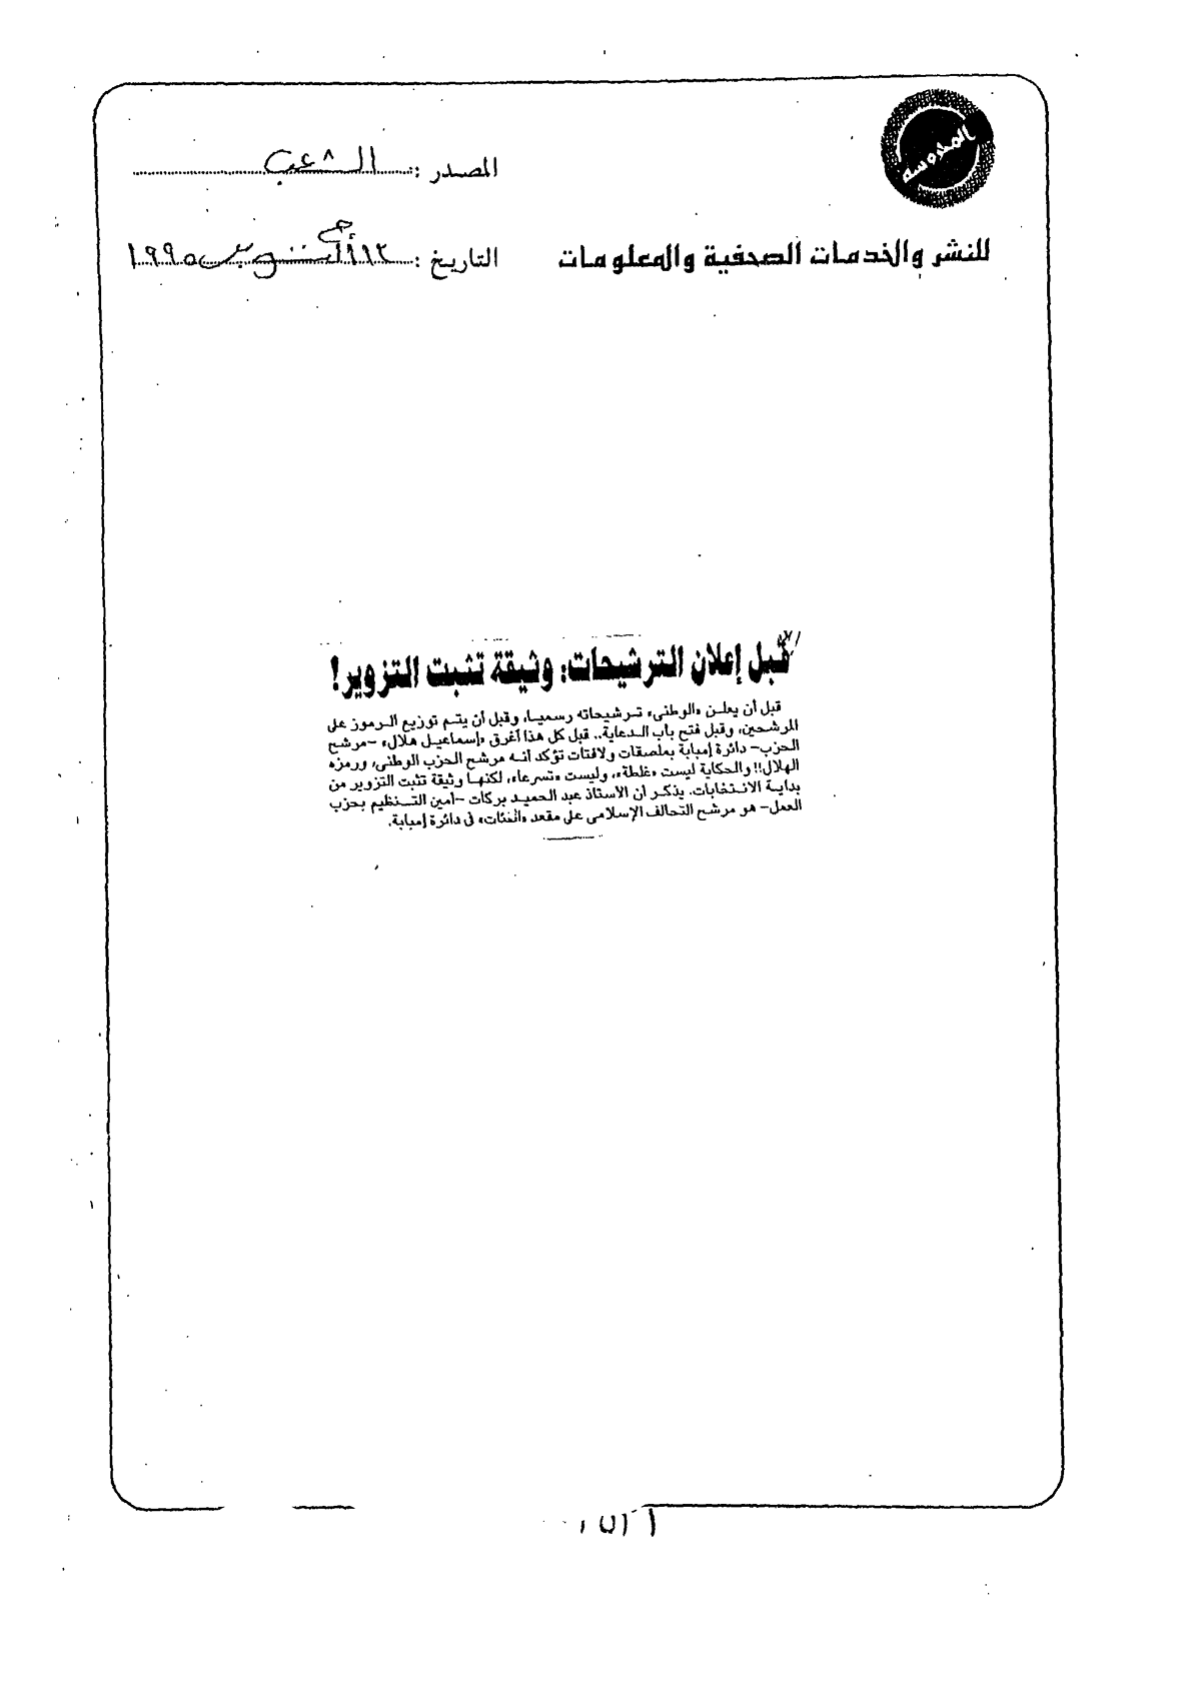 المحروسة
المصدر : الشعب
للنشر والخدمات الصحفية والمعلومات
التاريخ : ١٣ أكتوبر ١٩٩٥
قبل إعلان الترشيحات: وثيقة تثبت التزوير!
قبل أن يعلن «الوطنى» ترشيحاته رسميا، وقبل أن يتم توزيع الرموز على
المرشحين، وقبل فتح باب الدعاية.. قبل كل هذا أغرق «إسماعيل هلال» -مرشح
الحزب- دائرة إمبابة بملصقات ولافتات تؤكد أنه مرشح الحزب الوطنى، ورمزه
الهلال!! والحكاية ليست «غلطة»، وليست «تسرعا»، لكنها وثيقة تثبت التزوير من
بداية الانتخابات. يذكر أن الأستاذ عبد الحميد بركات -أمين التنظيم بحزب
العمل- هو مرشح التحالف الإسلامى على مقعد «الفئات» فى دائرة إمبابة.